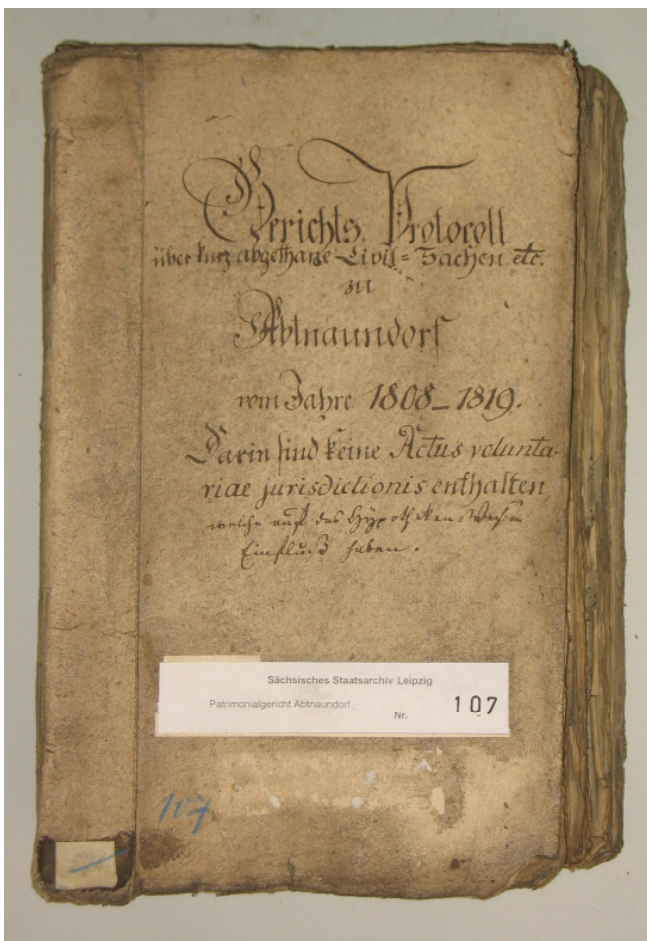 Gerichts Protocoll
über kurz abgethane Civil=Sachen etc.
zu
Abtnaundorf
vom Jahre 1808_1819.
Darin sind keine Actus volunta-
riae jurisdictionis enthalten
welche auf das Hypotheken-Wesen
Einfluß haben.
Sächsisches Staatsarchiv Leipzig
Patrimonialgericht Abtnaundorf
Nr. 107
107